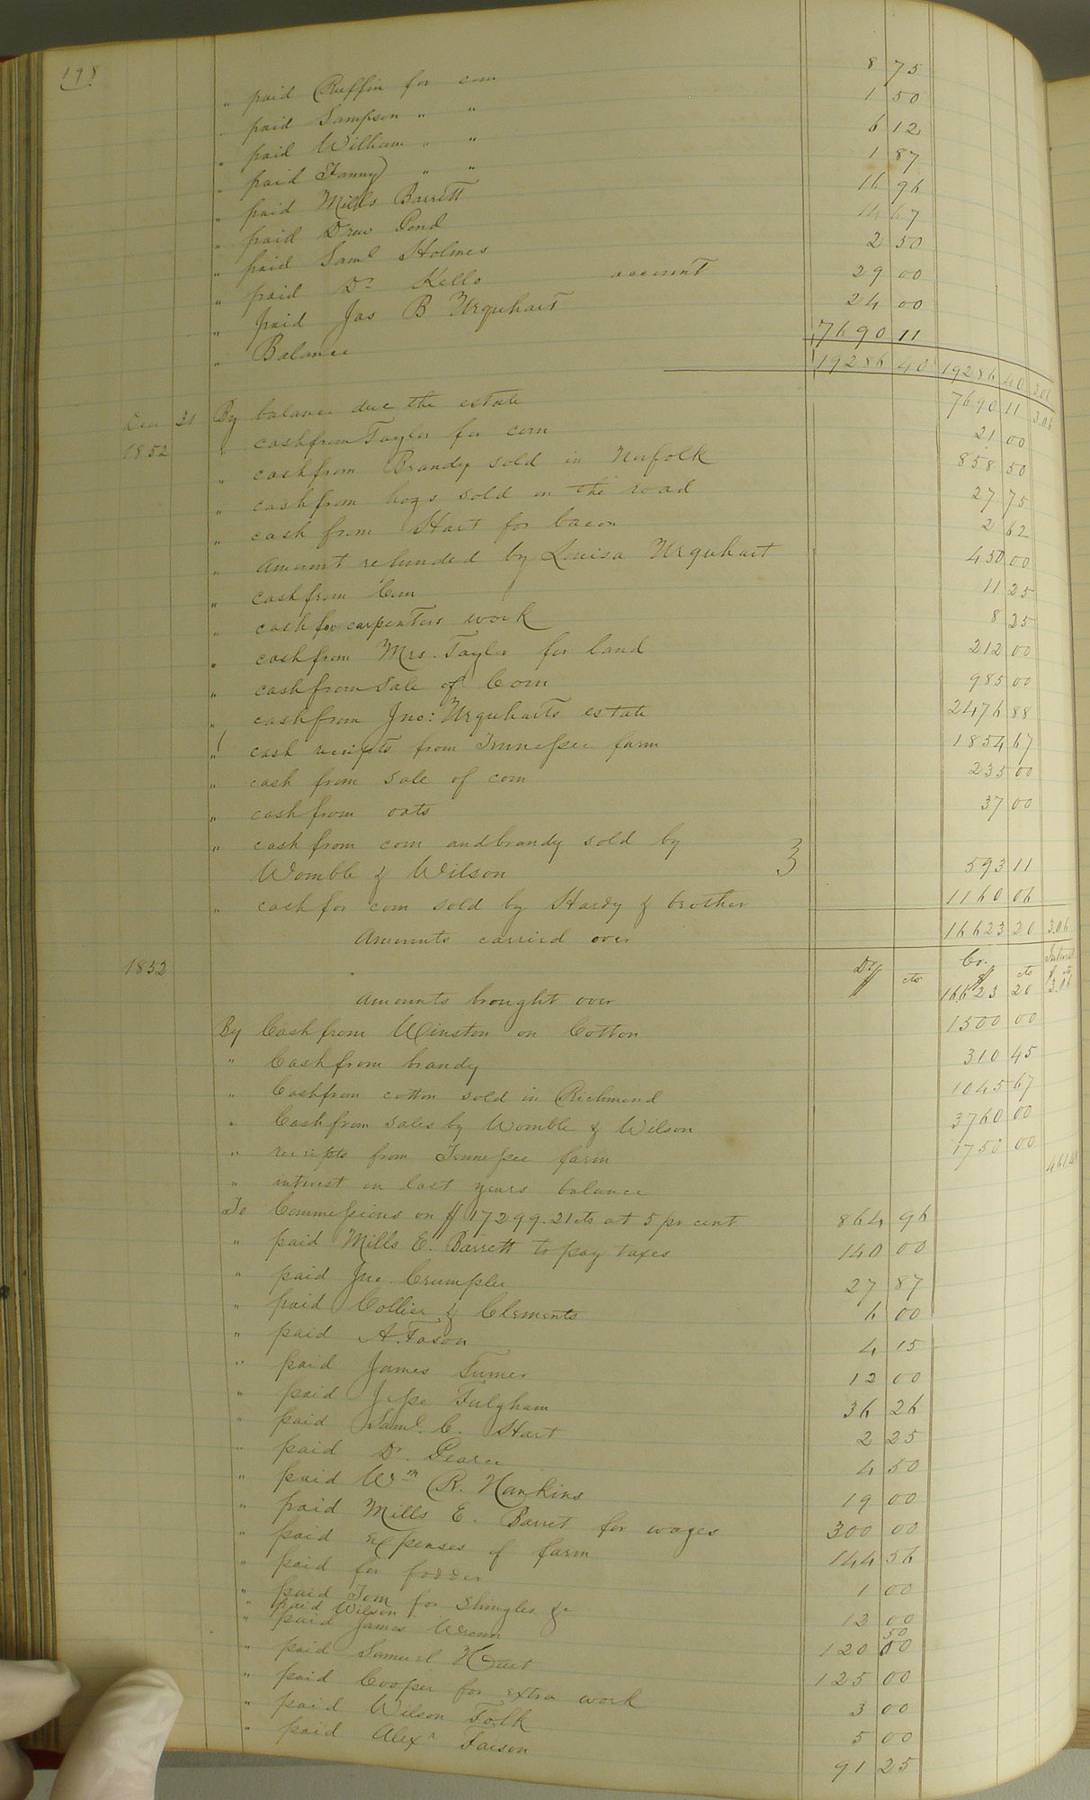 198
" paid Ruffin for corn 8 75
" paid Sampson " " 1 50
" paid William " " 6 12
" paid Fanny " " 1 87
" paid Mills Barrett 16 96
" paid Drew Pond 14 67
" paid Saml Holmes 2 50
" paid Dr Kello account 29 00
" paid Jas B Urquhart 24 00
" Balance 7690 11
19286 40 19286 40 306
Dec 31 By balance due the estate 7690 11 306
1852 " cash from Taylor for corn 21 00
" cash from Brandy sold in Norfolk 858 50
" cash from hogs sold on the road 27 75
" cash from Hart for bacon 2 62
" Amount refunded by Louisa Urquhart 450 00
" cash from Corn 11 25
" cash for carpenters work 8 25
" cash from Mrs. Taylor for land 212 00
" cash from sale of Corn 985 00
" cash from Jno: Urquharts estate 2476 88
" cash receipts from Tennessee farm 1854 67
" cash from sale of corn 235 00
" cash from oats 37 00
" cash from corn and brandy sold by
Womble & Wilson 593 11
" cash for corn sold by Hardy & brother 1160 06
Amounts carried over 16623 20 3.06
1852 Dr $ cts Cr. $ cts Interest $ cts
Amounts brought over 16623 20 3.06
By Cash from Winston on Cotton 1500 00
" Cash from brandy 310 45
" Cash from cotton sold in Richmond 1045 67
" Cash from sales by Womble & Wilson 3760 00
" receipts from Tennessee farm 1750 00
" interest on last years balance
To Commissions on $17299.21cts at 5 pr cent 864 96
" paid Mills E. Barrett to pay taxes 140 00
" paid Jno Crumpler 27 87
" paid Collier & Clements 6 00
" paid A. Fason 4 15
" paid James Turner 12 00
" paid Jesse Fulgham 36 26
" paid Saml. C. Hart 2 25
" paid Dr. Pearce 4 50
" paid Wm R. Hankins 19 00
" paid Mills E. Barret for wages 300 00
" paid expenses of farm 144 56
" paid for fodder 1 00
" paid Tom for shingles &c 13 00
" paid Wilson 50
" paid James Wrenn 120 00
" paid Samuel Hart 125 00
" paid Cooper for extra work 3 00
" paid Wilson Folk 5 00
" paid Alexr Faison 91 25